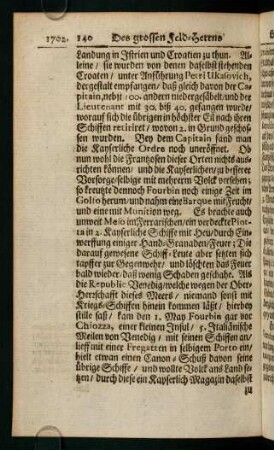 1702. 140 Des grossen Feld-Herrns
Landung in Istrien und Croatien zu thun. Al-
leine / sie wurden von denen daselbst stehenden
Croaten / unter Anführung Petri Ukalovich,
dergestalt empfangen / daß gleich davon der Ca-
pitain, nebst 100. andern niedergesäbelt, und der
Lieutenant mit 30. biß 40. gefangen wurde
worauf sich die übrigen in höchster Eil nach ihren
Schiffen retiriret / wovon 2. in Grund geschos-
sen wurden. Bey dem Capitain fand man
die Kayserliche Ordre noch uneröffnet. Ob
nun wohl die Frantzosen dieser Orten nichts aus-
richten können / und die Kayserlichen / zu besserer
Vorsorge / selbige mit mehrerm Volck versehen;
so kreutzte dennoch Fourbin noch einige Zeit im
Golfo herum / und nahm eine Barque mit Frucht /
und eine mit Munition weg. Es brachte auch
unweit Meso im Ferrarischen / ein verdeckte Plot-
ta in 2. Kayserliche Schiffe mit Heu / durch Ein-
werffung einiger Hand-Granaden / Feuer; Die
darauf gewesene Schiff-Leute aber setzten sich
tapffer zur Gegenwehr / und löschten das Feuer
bald wieder / daß wenig Schaden geschahe. Als
die Republic Venedig / welche wegen der Ober-
Herrschafft dieses Meers / niemand sonst mit
Kriegs-Schiffen hinein kommen läst / hierbey
stille saß / kam den 1. May Fourbin gar vor
Chiozza, einer kleinen Insul / 5. Italiänische
Meilen von Venedig / mit seinen Schiffen an /
lieff mit einer Fregatten in selbigem Porto ein /
hielt etwan einen Canon-Schuß davon seine
übrige Schiffe / und wollte Volck ans Land se-
tzen / durch diese ein Kayserlich Magazin daselbst
zu